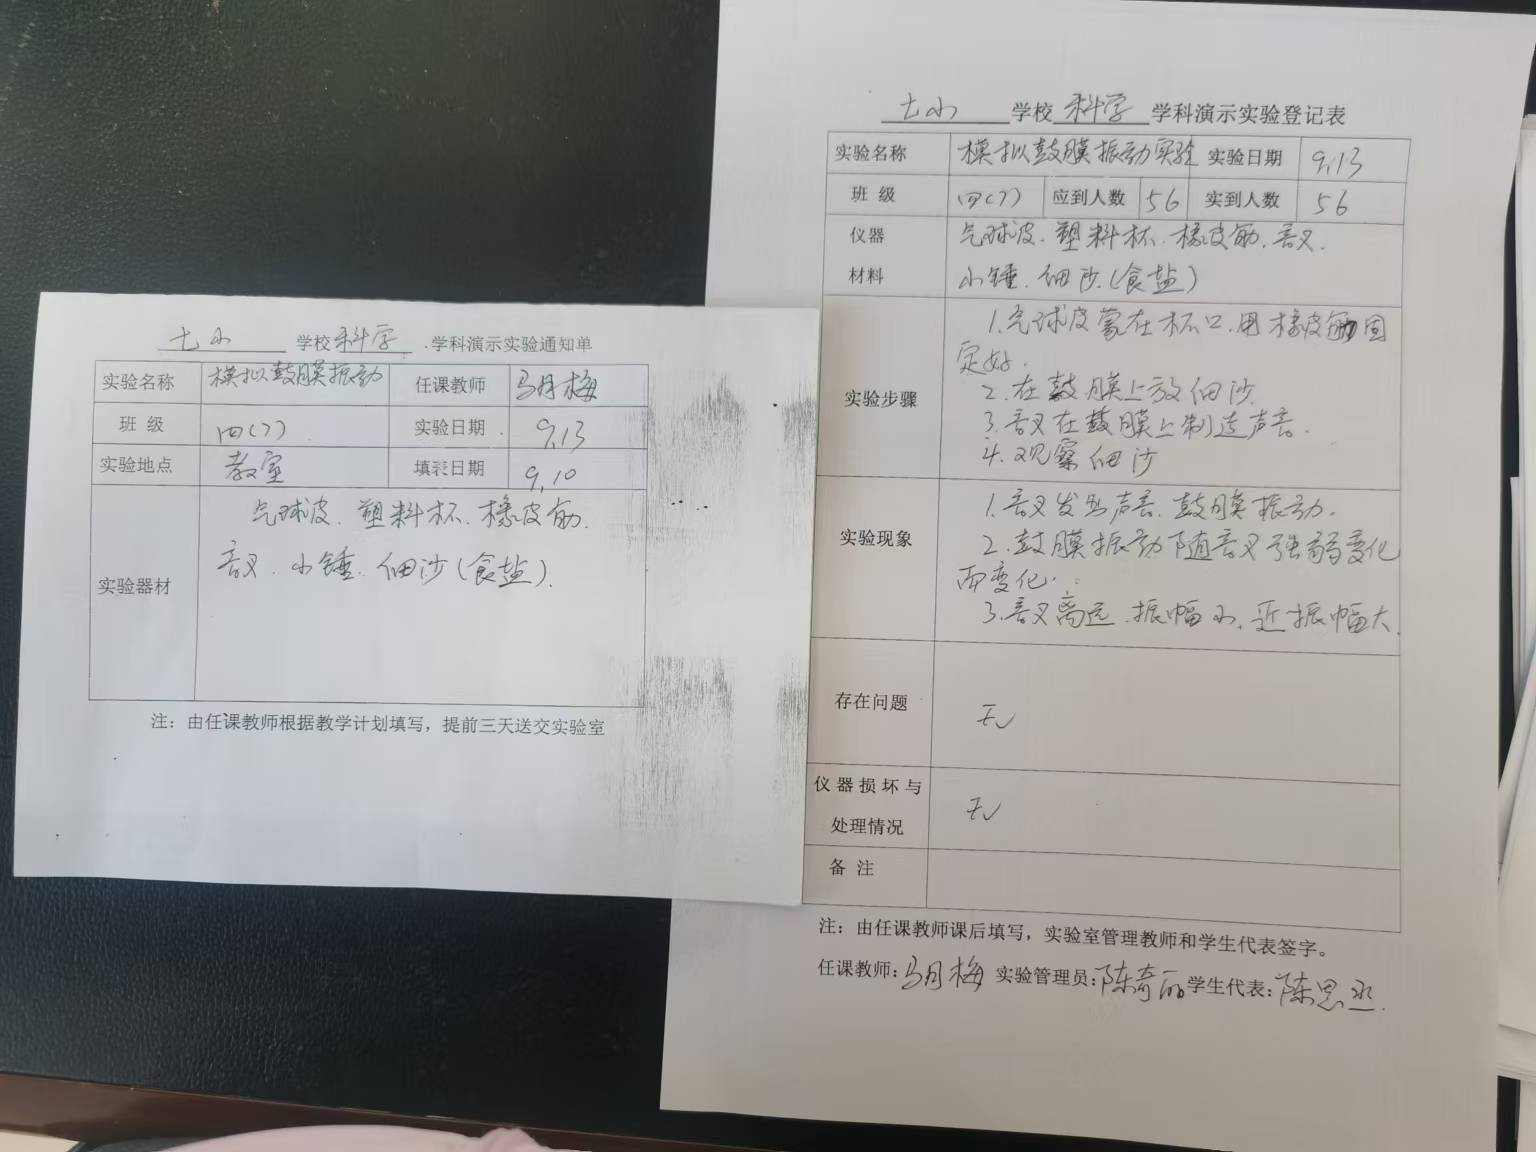 七小 学校 科学 学科演示实验通知单
实验名称 模拟鼓膜振动 任课教师 马月梅
班 级 四(7) 实验日期 9.13
实验地点 教室 填表日期 9.10
实验器材 气球皮、塑料杯、橡皮筋、
音叉、小锤、细沙(食盐).
注：由任课教师根据教学计划填写，提前三天送交实验室
七小 学校 科学 学科演示实验登记表
实验名称 模拟鼓膜振动实验 实验日期 9.13
班 级 四(7) 应到人数 56 实到人数 56
仪器 气球皮、塑料杯、橡皮筋、音叉、
材料 小锤、细沙(食盐)
实验步骤 1.气球皮蒙在杯口,用橡皮筋固
定好.
2.在鼓膜上放细沙.
3.音叉在鼓膜上制造声音.
4.观察细沙
实验现象 1.音叉发出声音、鼓膜振动.
2.鼓膜振动随音叉强弱变化
而变化.
3.音叉离远、振幅小,近振幅大.
存在问题 无
仪器损坏与
处理情况 无
备 注
注：由任课教师课后填写，实验室管理教师和学生代表签字。
任课教师:马月梅 实验管理员:陈奇丽 学生代表:陈思丞.